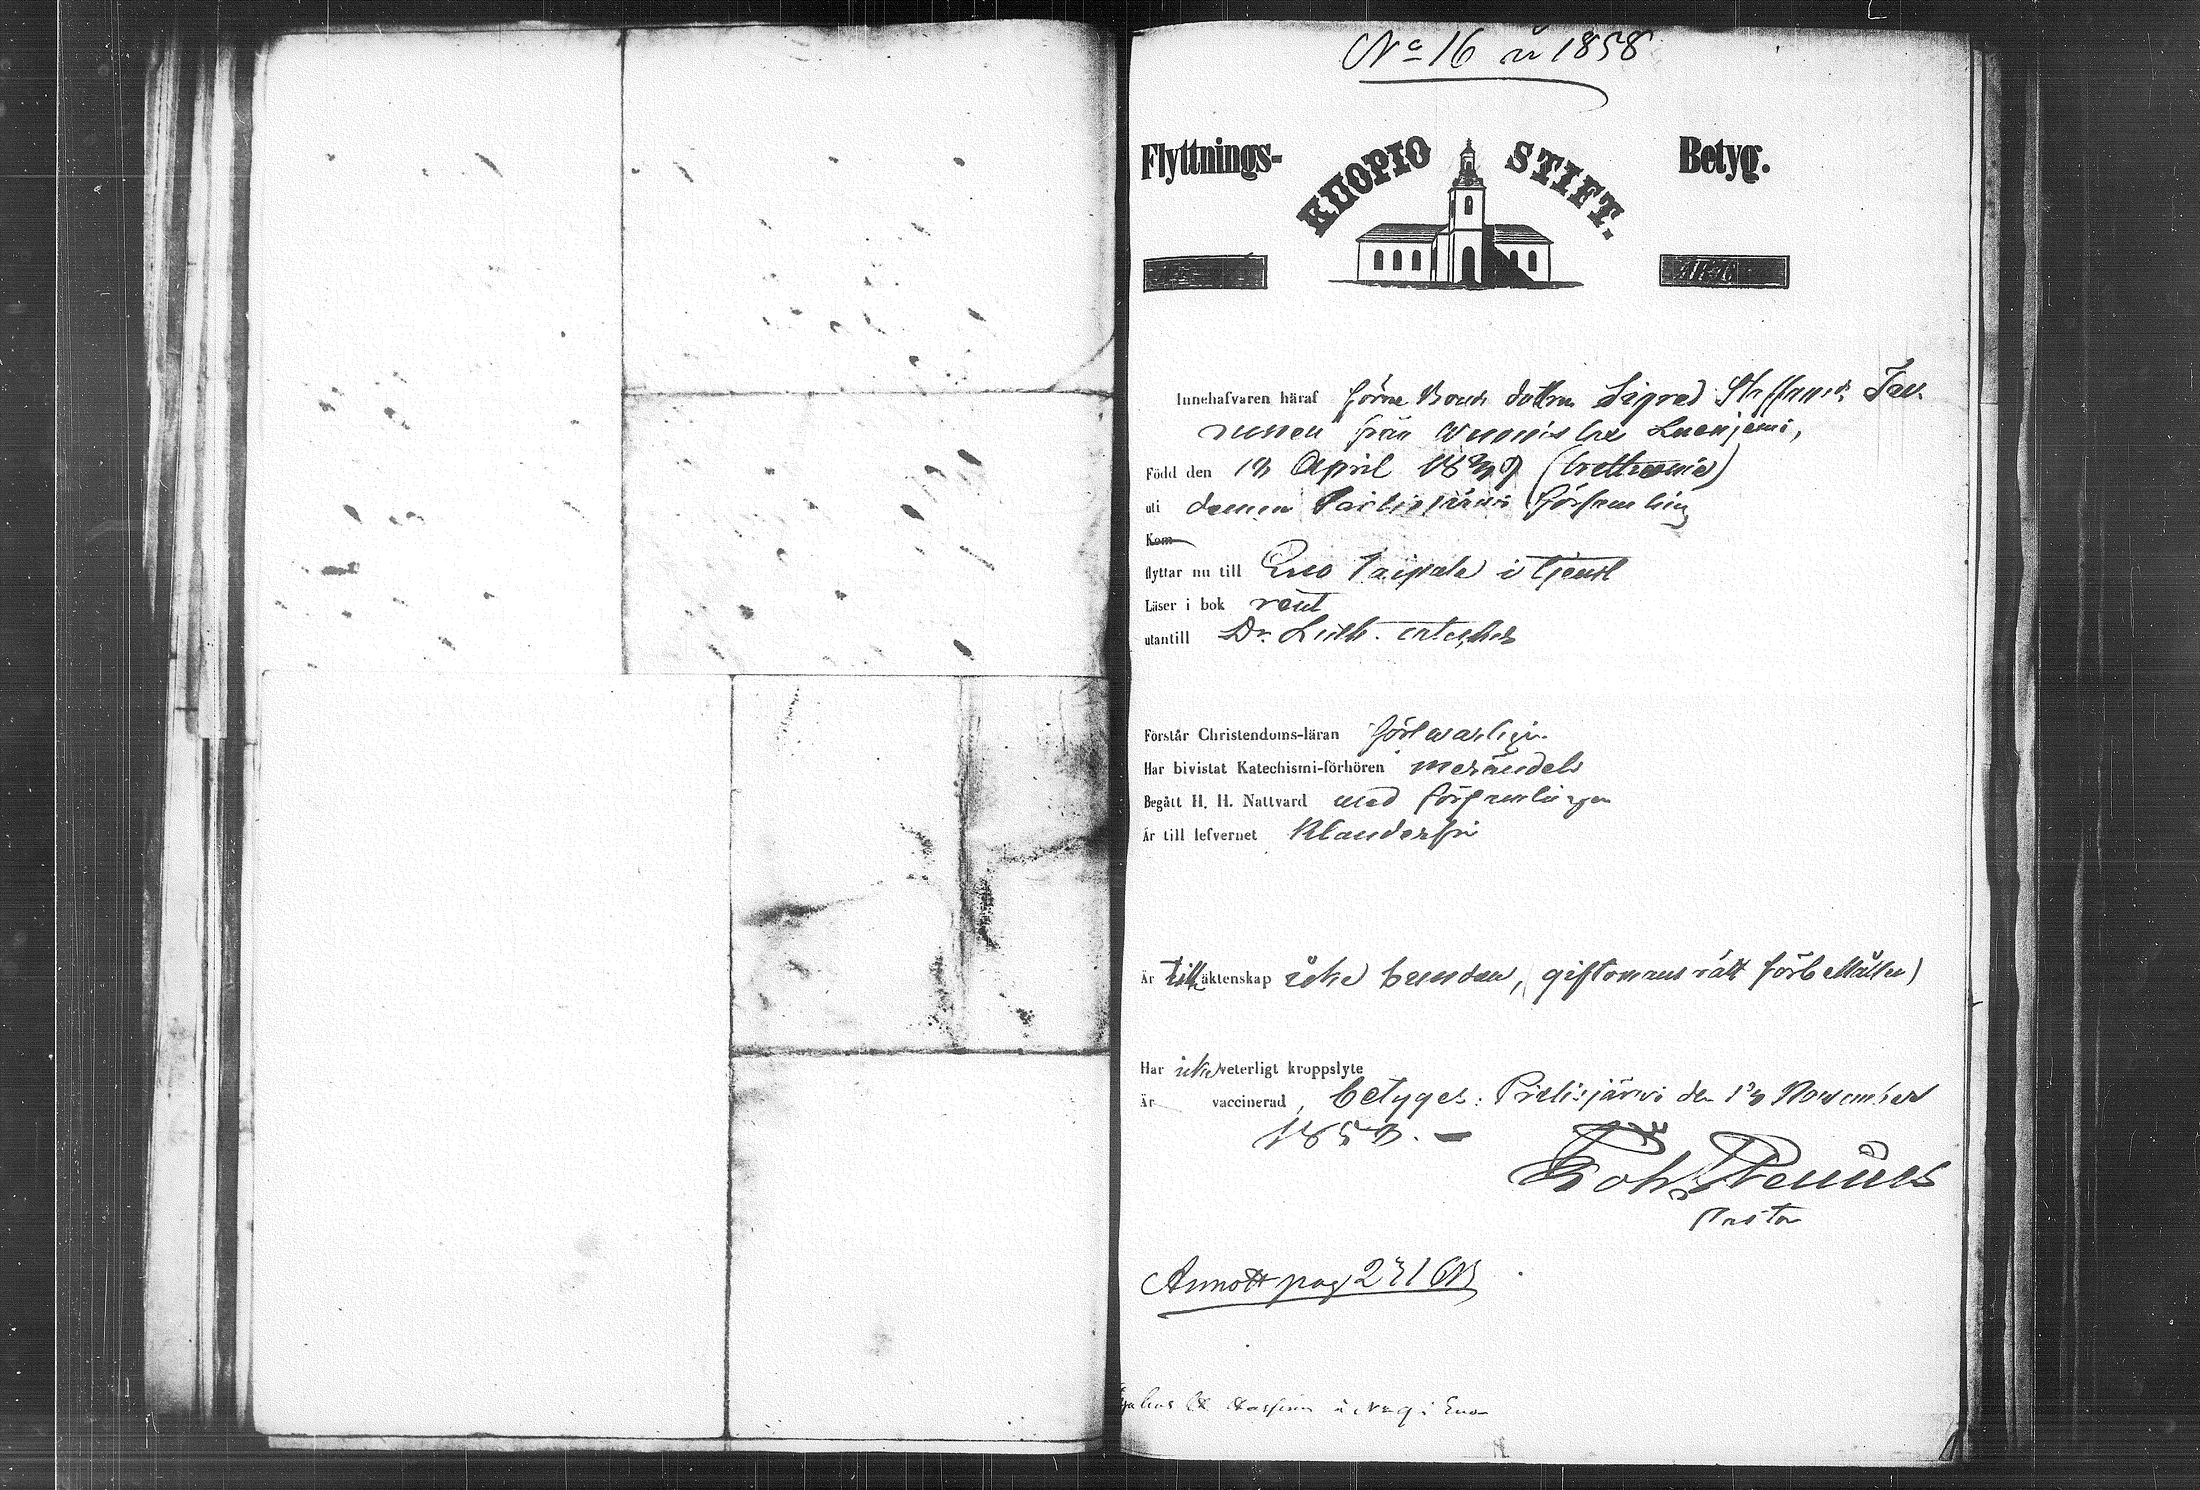 No 16 år 1858
Flyttnings- KUOPIO STIFT. Betyg.
Innehafvaren häraf förre Bonde dottren Sigred Staffansdr Tau-
runen från Lieksjärvi,
Född den 18 April 1839 (trettionio)
uti denna Pielisjärvi församling
Kom
flyttar nu till Eno Paipale i tjenst
Läser i bok rent
utantill Dr. Luth. cateches
Förstår Christendoms-läran försvarligen
Har bivistat Katechismi-förhören merändels
Begått H. H. Nattvard med församlingen
Är till lefvernet Klanderfri
Är till äktenskap icke bunden, giftomans rätt förbehållen
Har icke veterligt kroppslyte
Är vaccinerad, betyges: Pielisjärvi den 13 November
1858. —
Joh.
Pastor
Annott pag 231
i Eno